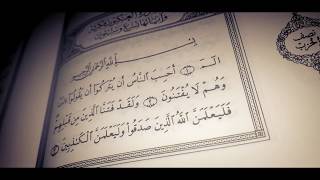 بِسْمِ اللَّهِ الرَّحْمَٰنِ الرَّحِيمِ
الٓمٓ ١ أَحَسِبَ النَّاسُ أَن يُتْرَكُوٓا أَن يَقُولُوٓا
وَهُمْ لَا يُفْتَنُونَ ٢ وَلَقَدْ فَتَنَّا الَّذِينَ مِن قَبْلِهِمْ
فَلَيَعْلَمَنَّ اللَّهُ الَّذِينَ صَدَقُوا وَلَيَعْلَمَنَّ الْكَٰذِبِينَ ٣
نصف
الحزب